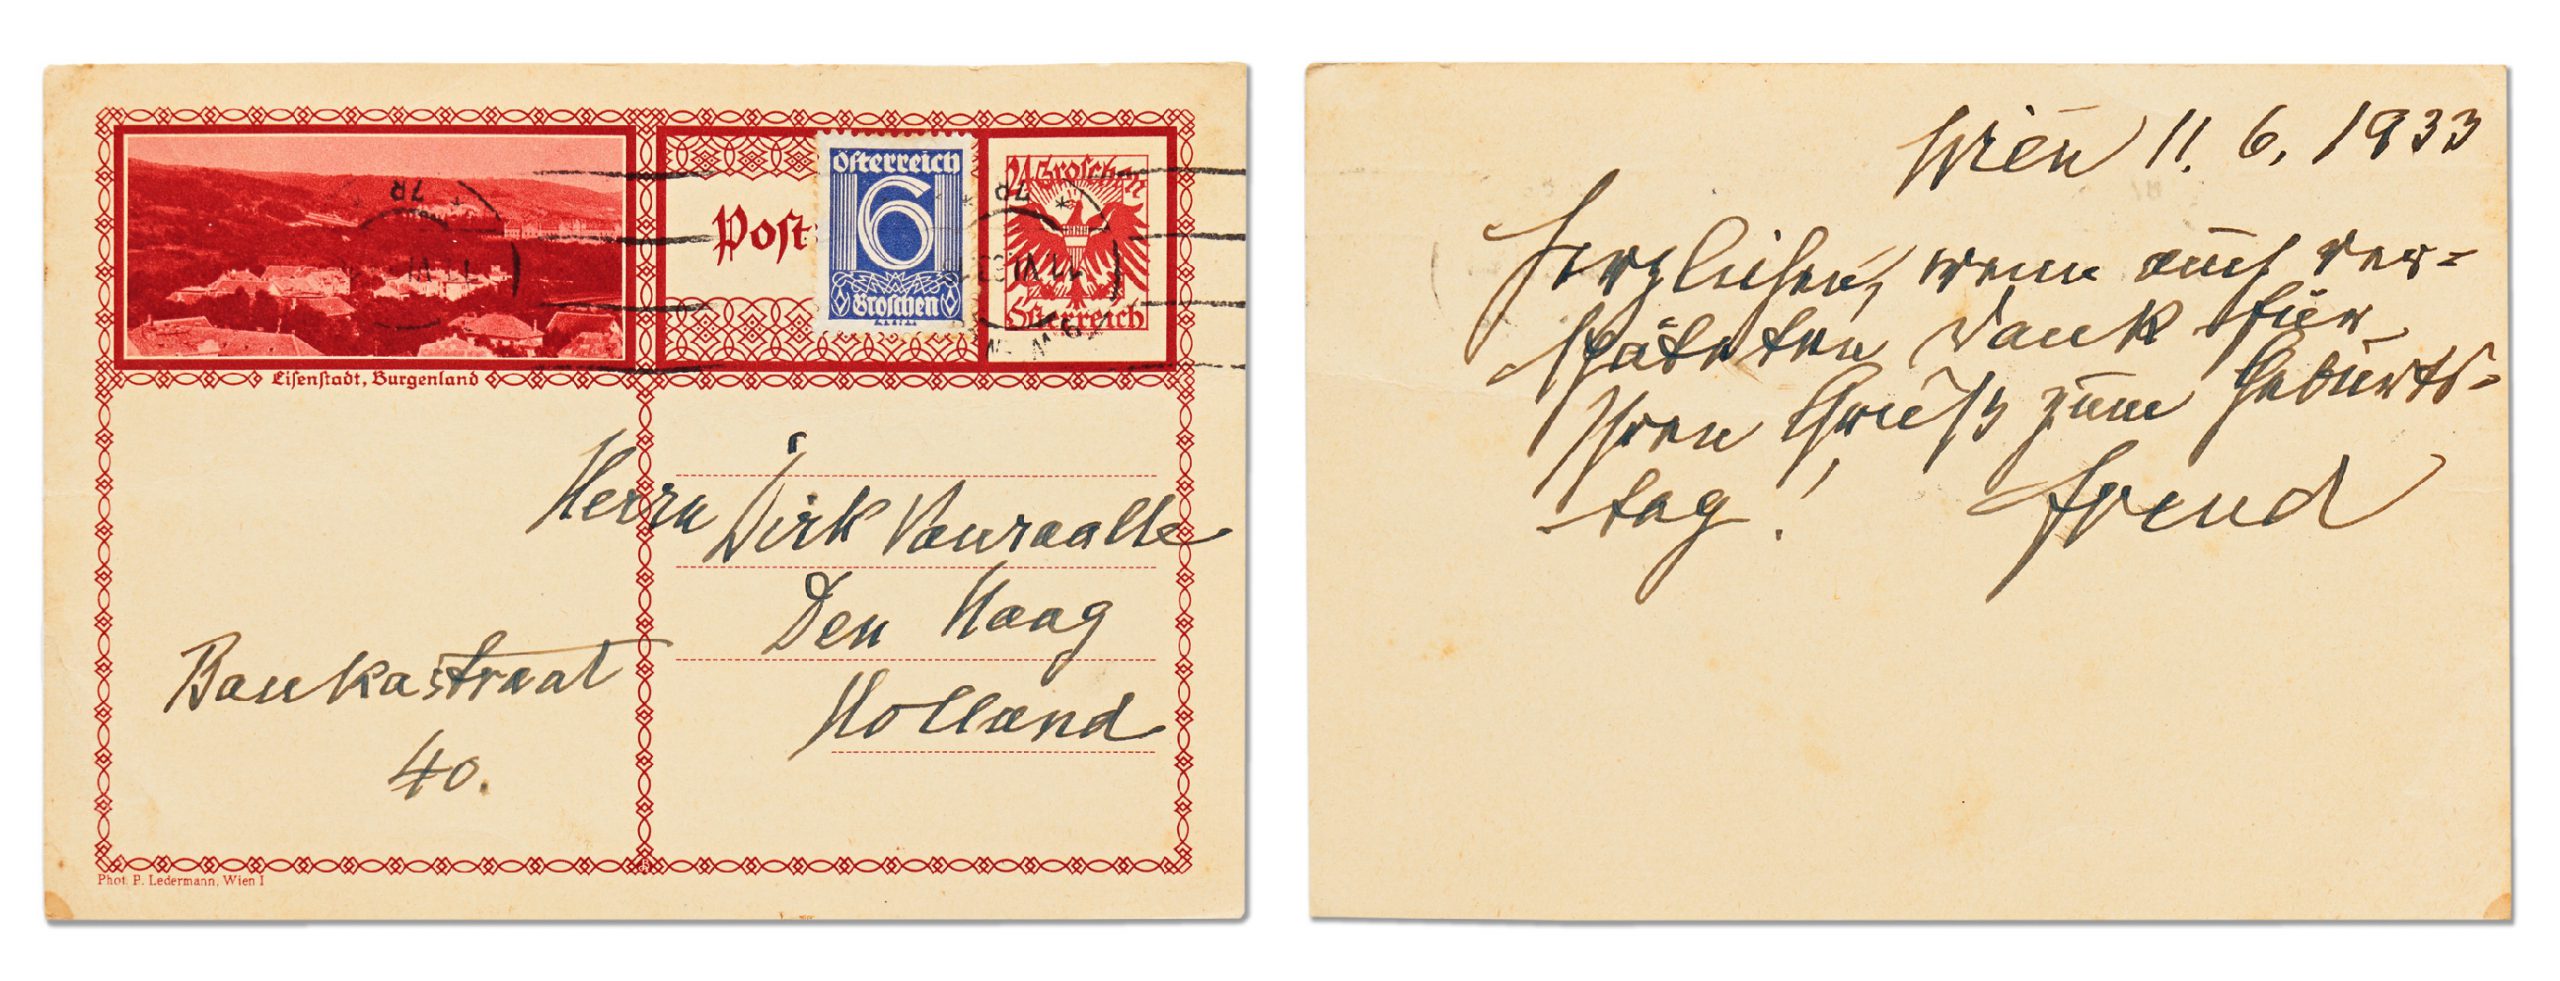 Österreich
6
Groschen
Post
24 Groschen
Österreich
Eisenstadt, Burgenland
Herrn Dirk Vanraalte
Den Haag
Holland
Bankastraat
40.
Phot. P. Ledermann, Wien I
Wien 11. 6. 1933
Herzlichen, wenn auch ver=
späteten Dank für
Ihren Gruß zum Geburts=
tag!
Freud